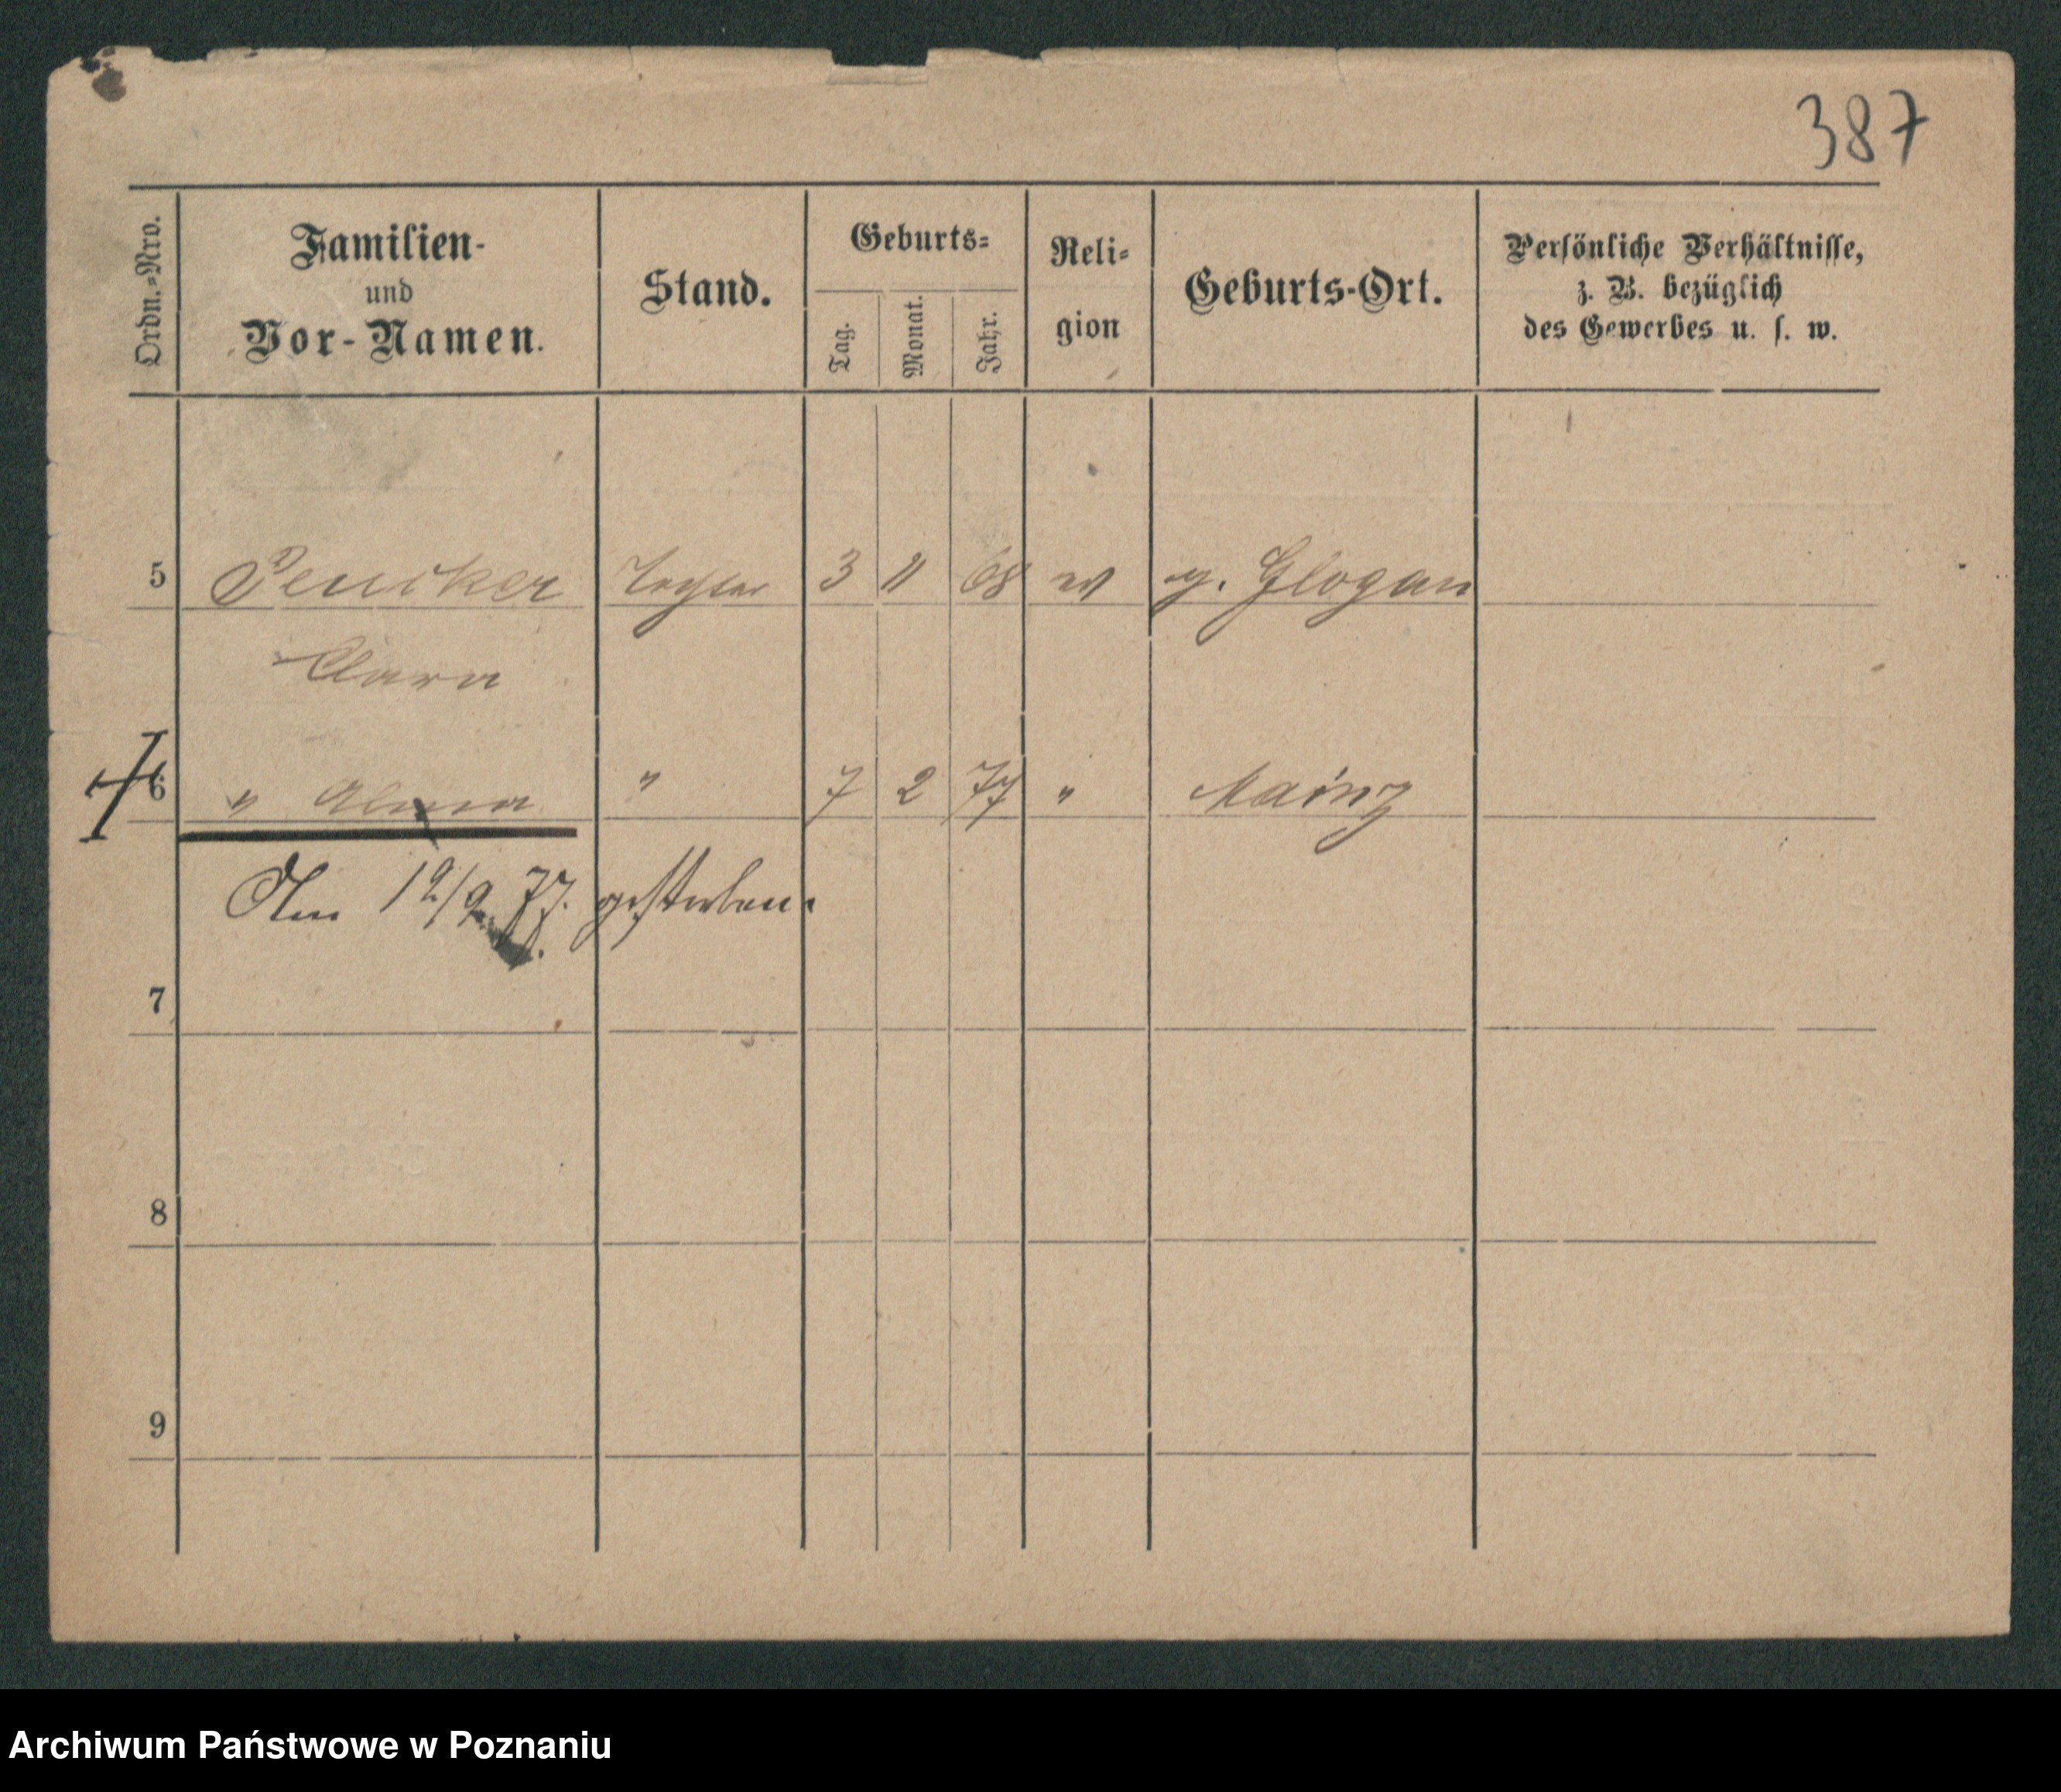 387
Ordn.-Nro.
Familien-
und
Vor-Namen.
Stand.
Geburts-
Tag.
Monat.
Jahr.
Reli-
gion
Geburts-Ort.
Persönliche Verhältnisse,
z. B. bezüglich
des Gewerbes u. s. w.
5 Peucker Tochter 3 11 68 ev g. Glogau
Clara
6 " " " 7 2 77 " Mainz
Am 12/9. 77. gestorben.
7
8
9
Archiwum Państwowe w Poznaniu